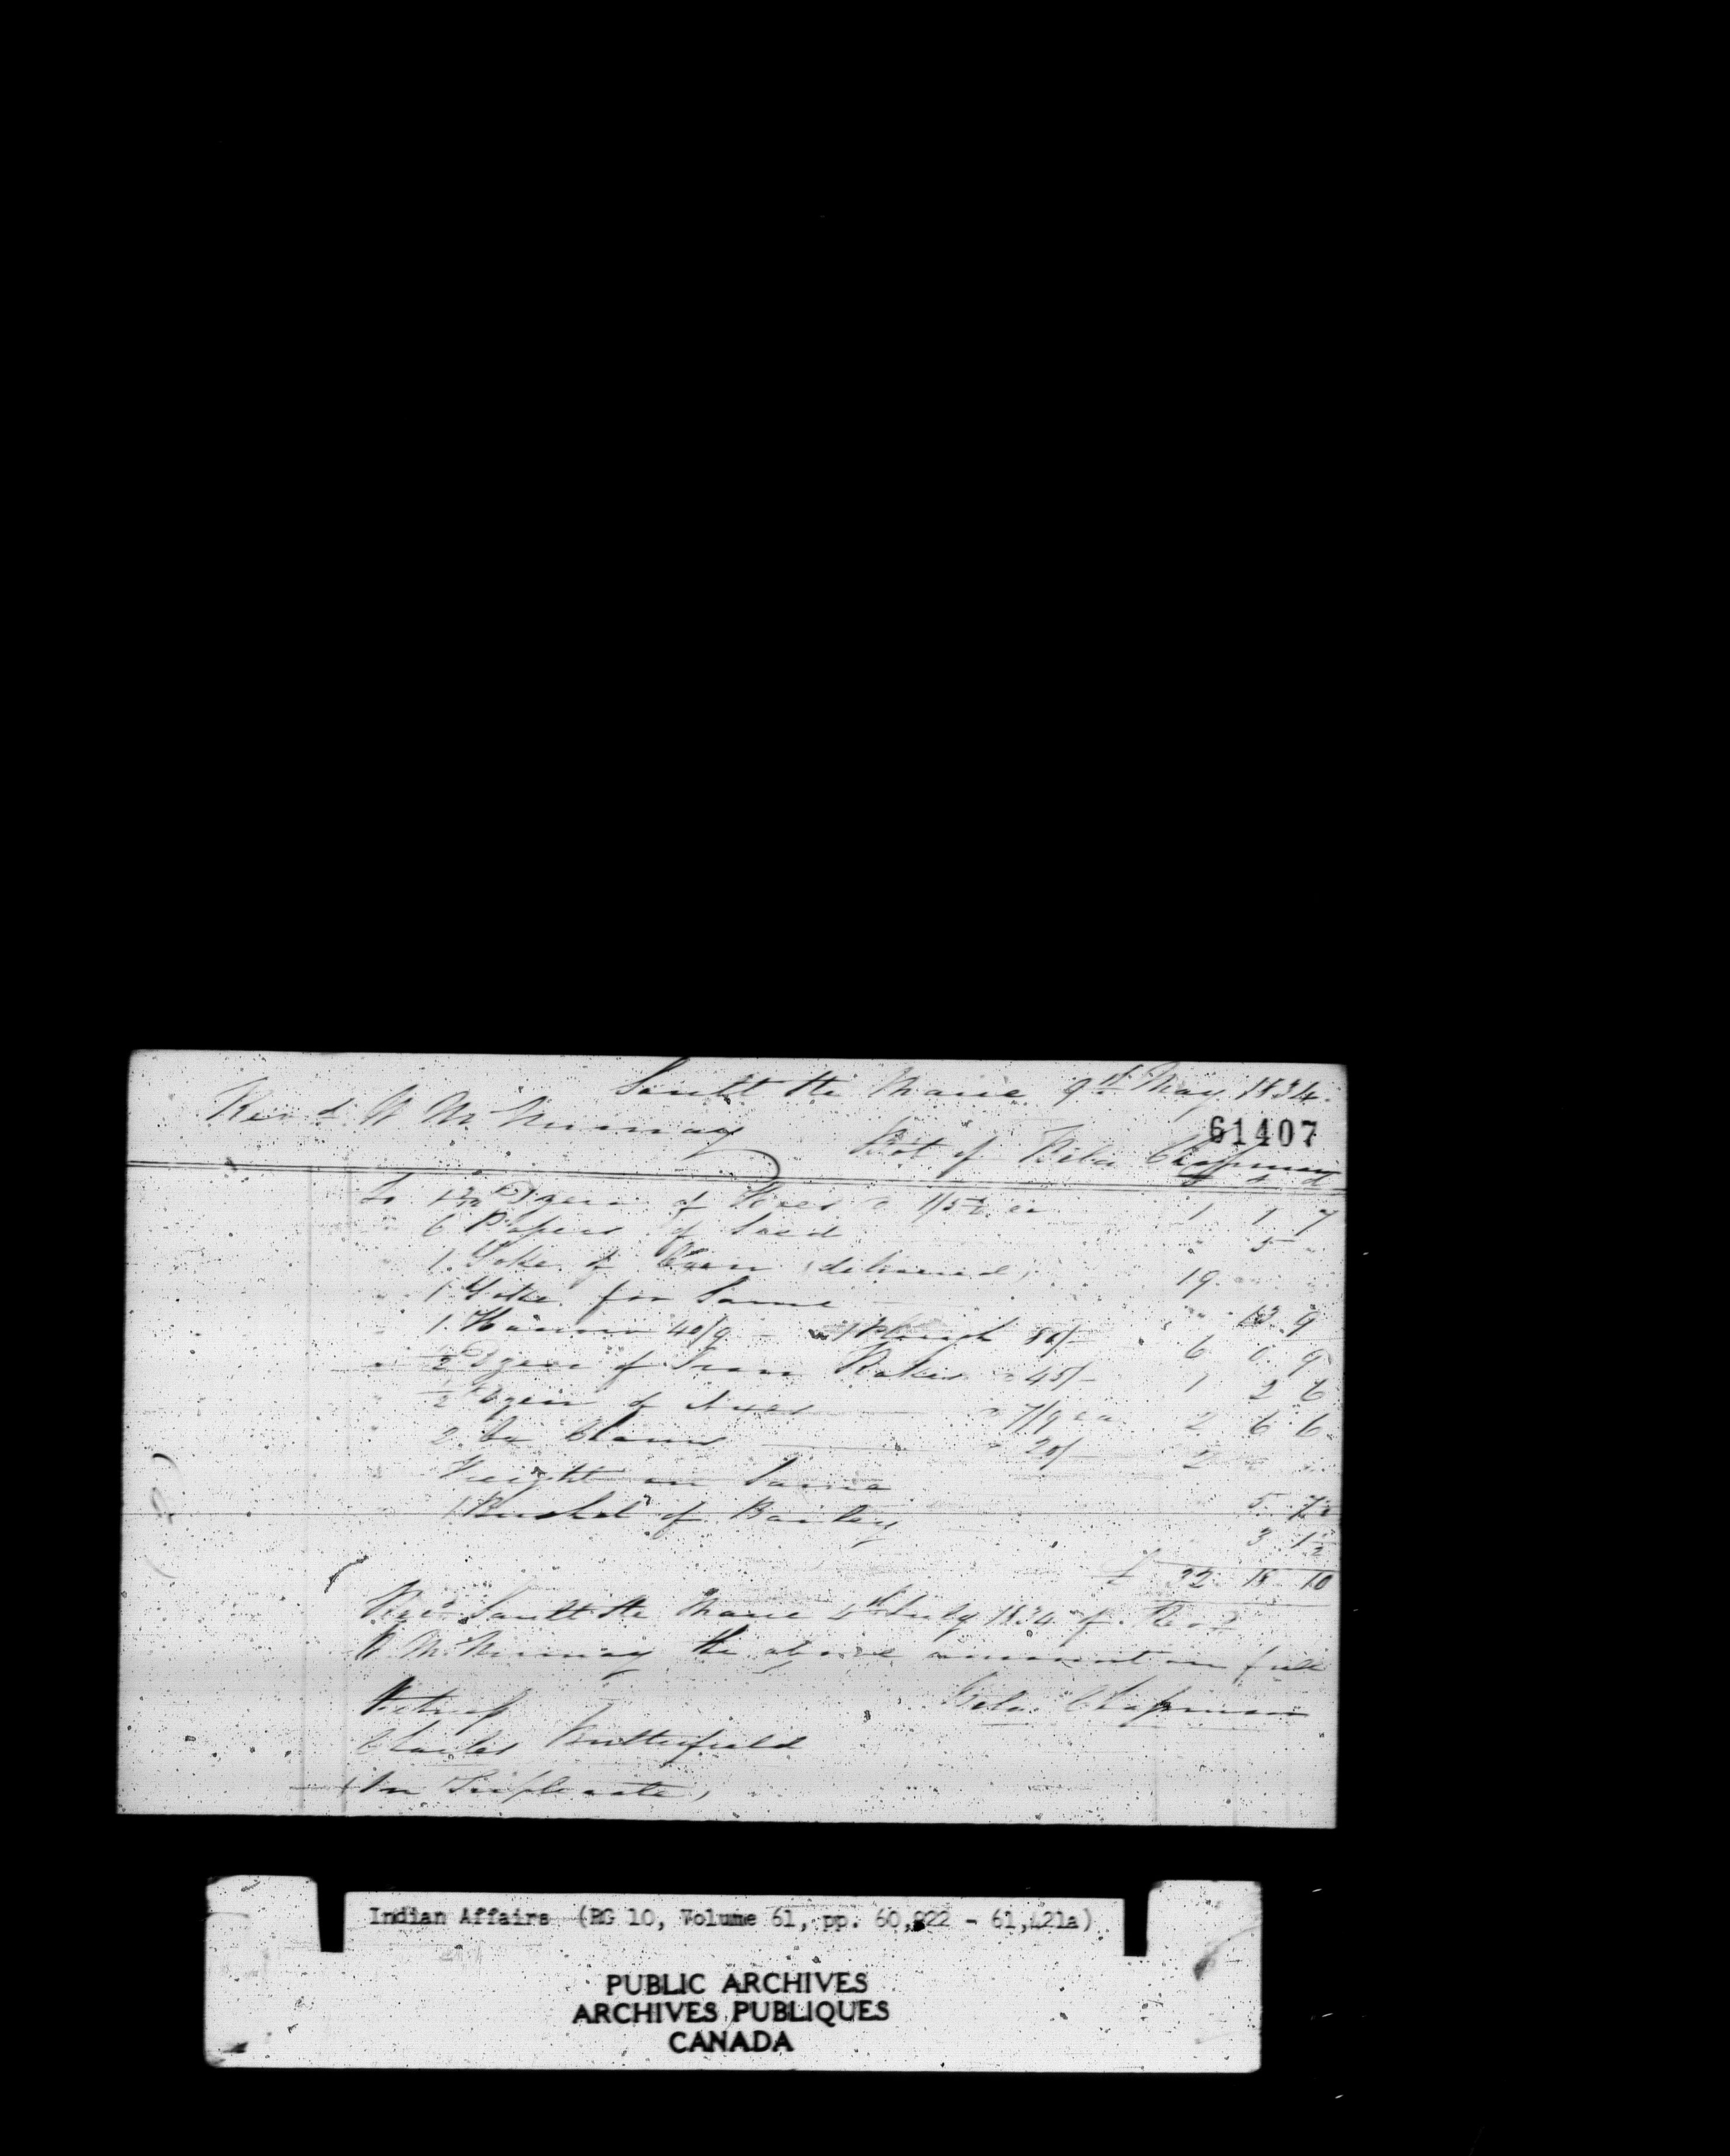 Sault Ste Marie 9th May 1834.
61407
Revd W McMurray
Bot of Bela Chapman
£ s d
To Dozen of Hoes @ 1/5½ ea 1 1 7
" 6 Papers of Seed " 5 "
" 1 Yoke of Oxen (delivered) 19 " "
" 1 Yoke for Same " 13 9
" 1 Harrow 40/9 1 Plough 80/- 6 0 9
" ½ Dozen of Iron Rakes @ 45/- 1 2 6
" ½ Dozen of Axes @ 7/9 ea 2 6 6
" 2 Ox Chains @ 20/- 2 " "
" Freight on Same 5 7½
" 1 Bushel of Barley 3 1½
£ 32 18 10
Recd Sault Ste Marie 4th July 1834 of Revd
W McMurray the above amount in full
Witness Bela Chapman
Charles Butterfield
(In Triplicate)
Indian Affairs (RG 10, Volume 61, pp. 60,922 - 61,421a)
PUBLIC ARCHIVES
ARCHIVES PUBLIQUES
CANADA